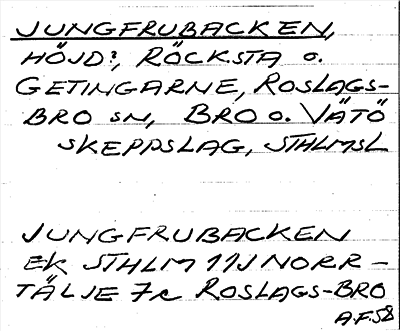 JUNGFRUBACKEN,
HÖJD?, RÖCKSTA o.
GETINGARNE, ROSLAGS-
BRO SN, BRO o. VÄTÖ
SKEPPSLAG, STHLMSL
JUNGFRUBACKEN
EK STHLM 11J NORR-
TÄLJE 7c ROSLAGS-BRO
A.F. 58